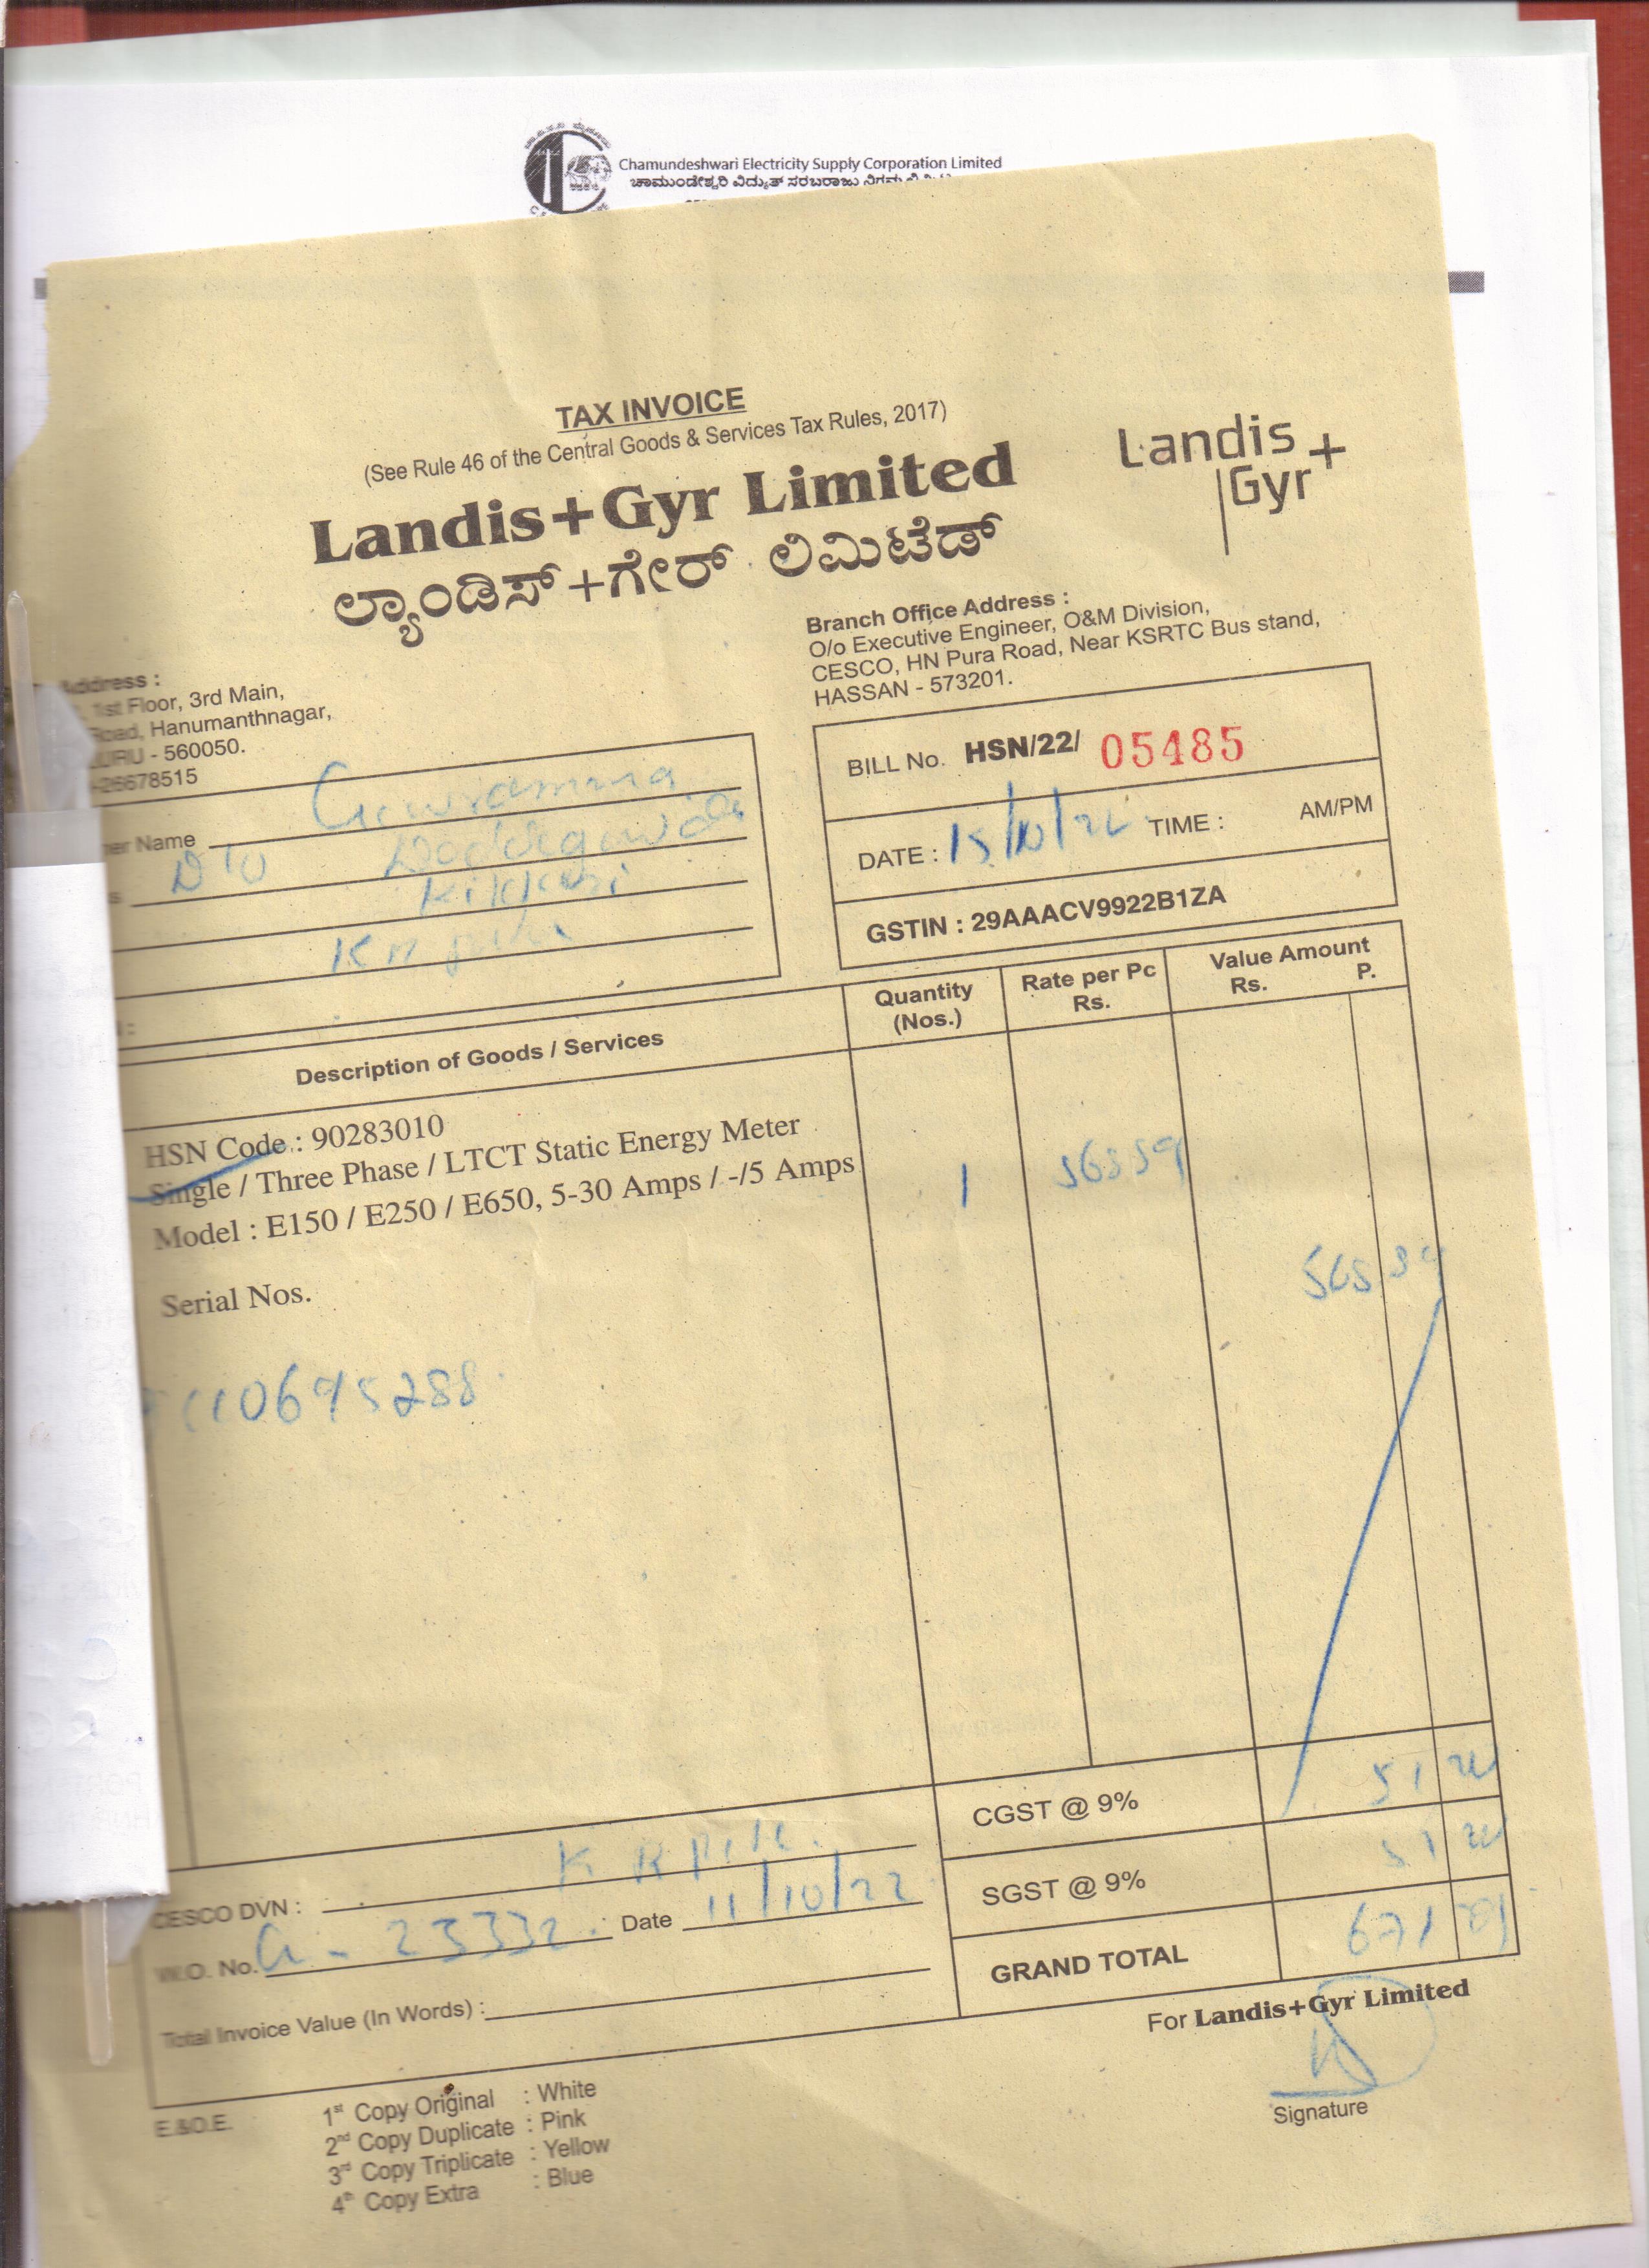 Chamundeshwari Electricity Supply Corporation Limited
ಚಾಮುಂಡೇಶ್ವರಿ ವಿದ್ಯುತ್ ಸರಬರಾಜು ನಿಗಮ
TAX INVOICE
(See Rule 46 of the Central Goods & Services Tax Rules, 2017)
Landis+Gyr Limited
ಲ್ಯಾಂಡಿಸ್+ಗೇರ್ ಲಿಮಿಟೆಡ್
Landis+
Gyr
Address :
1st Floor, 3rd Main,
Road, Hanumanthnagar,
- 560050.
-26678515
Branch Office Address :
O/o Executive Engineer, O&M Division,
CESCO, HN Pura Road, Near KSRTC Bus stand,
HASSAN - 573201.
Name Gowramma
Doddegowda
Kikkeri
BILL No. HSN/22/ 05485
DATE : 15/10/22 TIME : AM/PM
GSTIN : 29AAACV9922B1ZA
Description of Goods / Services
Quantity
(Nos.)
Rate per Pc
Rs.
Value Amount
Rs. P.
HSN Code : 90283010
Single / Three Phase / LTCT Static Energy Meter
Model : E150 / E250 / E650, 5-30 Amps / -/5 Amps
1
Serial Nos.
CGST @ 9% 51
SGST @ 9% 51
GRAND TOTAL 671
CESCO DVN : K R Pete
W.O. No. 23332 Date 11/10/22
Total Invoice Value (In Words) :
For Landis+Gyr Limited
Signature
E.&O.E.
1st Copy Original : White
2nd Copy Duplicate : Pink
3rd Copy Triplicate : Yellow
4th Copy Extra : Blue